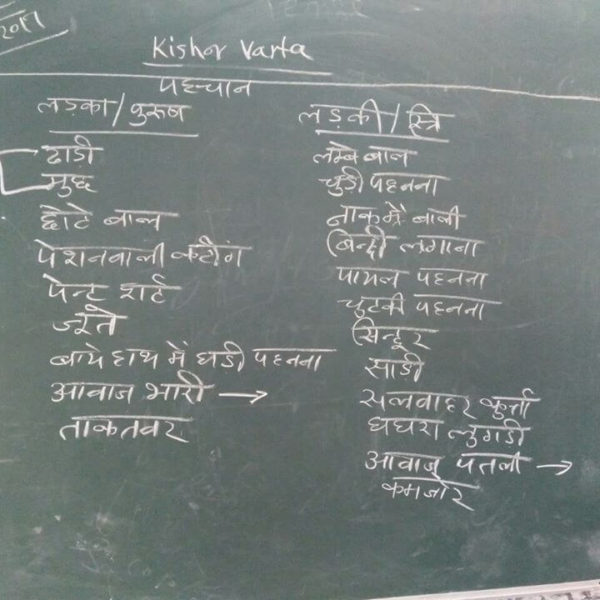 2017
Kishor Varta
पहचान
लड़का / पुरूष
दाडी
मुछ
छोटे बाल
पेशनवाली कटींग
पेन्ट शर्ट
जूते
बाये हाथ में घडी पहनना
आवाज भारी →
ताकतवर
लड़की / स्त्रि
लम्बे बाल
चुडी पहनना
नाक में बाली
बिन्दी लगाना
पायल पहनना
चुटकी पहनना
सिन्दूर
साडी
सलवार कुर्ता
घघरा लुगडी
आवाज पतली →
कमजोर